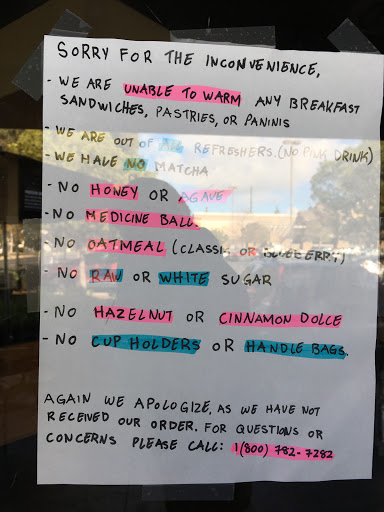 SORRY FOR THE INCONVENIENCE,
- WE ARE UNABLE TO WARM ANY BREAKFAST
SANDWICHES, PASTRIES, OR PANINIS
- WE ARE OUT OF ALL REFRESHERS. (NO PINK DRINK)
- WE HAVE NO MATCHA
- NO HONEY OR AGAVE
- NO MEDICINE BALL.
- NO OATMEAL (CLASSIC OR BLUEBERRY)
- NO RAW OR WHITE SUGAR
- NO HAZELNUT OR CINNAMON DOLCE
- NO CUP HOLDERS OR HANDLE BAGS.
AGAIN WE APOLOGIZE, AS WE HAVE NOT
RECEIVED OUR ORDER. FOR QUESTIONS OR
CONCERNS PLEASE CALL: 1(800) 782-7282